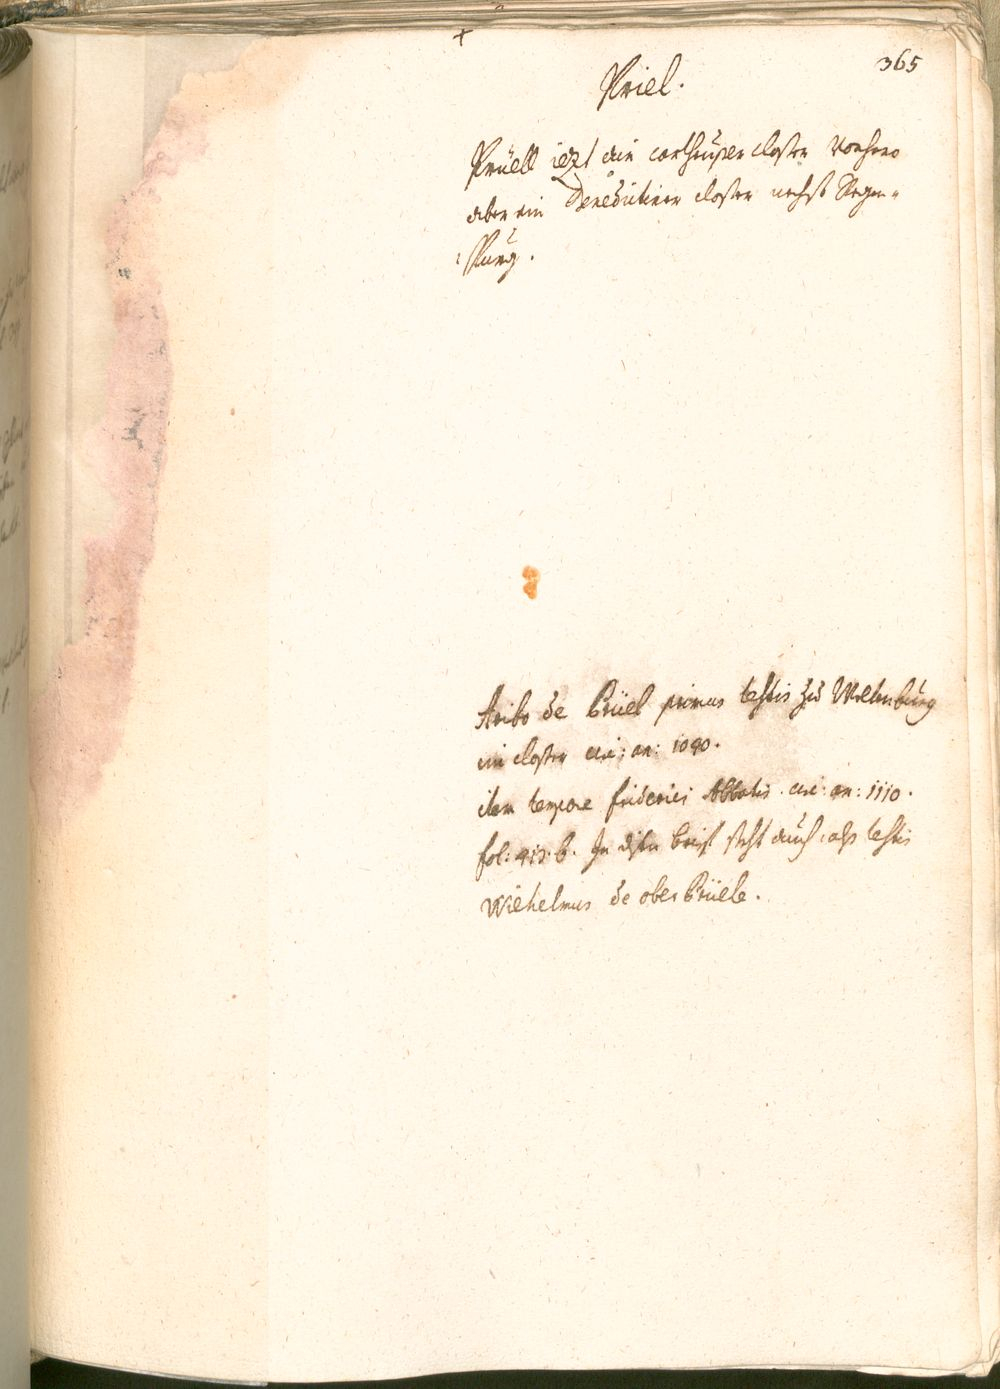 365
Priel.
Prüell iezt ain cartheüser closter vorhero
aber ein Benedictiner closter negst Regen-
spurg.
Aribo de Brüel primus testis zu Weltenburg
im closter circ: an: 1090.
item tempore friderici Abbatis. circ: an: 1110.
fol: 413. b. In disen brief steht auch als testis
Wilhelmus de ober Brüele.